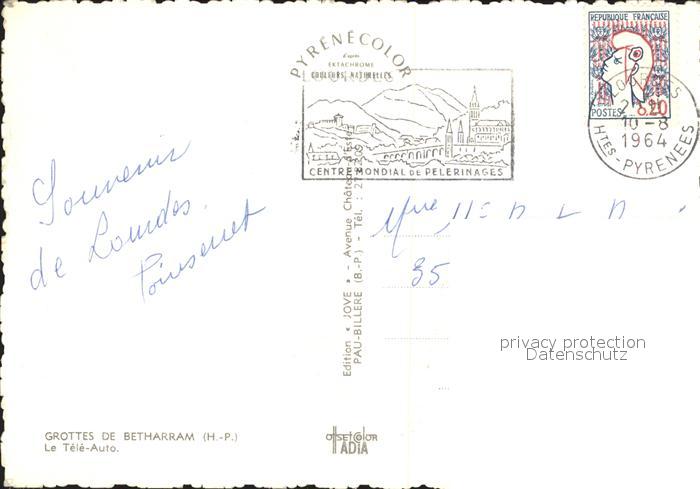 Souvenir
de Lourdes.
GROTTES DE BETHARRAM (H.-P.)
Le Télé-Auto.
PYRÉNÉCOLOR
d'après
EKTACHROME
COULEURS NATURELLES
CENTRE MONDIAL DE PELERINAGES
Edition « JOVE » - Avenue Château d'Este
PAU-BILLERE (B.-P.) - Tél. :
OffsetColor
IADIA
REPUBLIQUE FRANÇAISE
POSTES 0,20
LOURDES
10-8
1964
HTES PYRENEES
35
privacy protection
Datenschutz